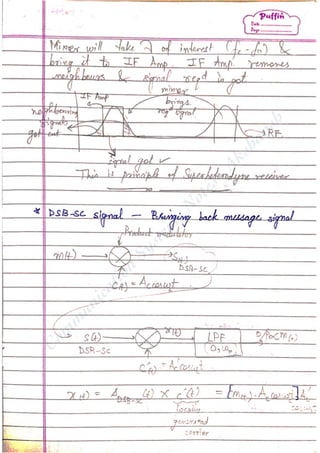 Puffin
Date
Page
Mixer will take λ of interest (fc - fm) &
bring it to IF Amp. IF Amp removes
neighbours & signal reqd is got
mixer
IF Amp
brings
reqd signal
neighbouring
signals
got cut
RF
signal got ✓
This is principle of Superheterodyne receiver
* DSB-SC signal — Bringing back message signal
Product modulator
m(t)
S(t)
DSB-SC
C(t) = Ac cosωct
S(t)
x(t)
LPF
(0, ωm)
O/P ∝ m(t)
DSB-SC
C'(t) = Ac' cosωct
x(t) = S DSB-SC (t) × c'(t) = [m(t) · Ac cosωct] Ac' cosωct
locally
generated
carrier